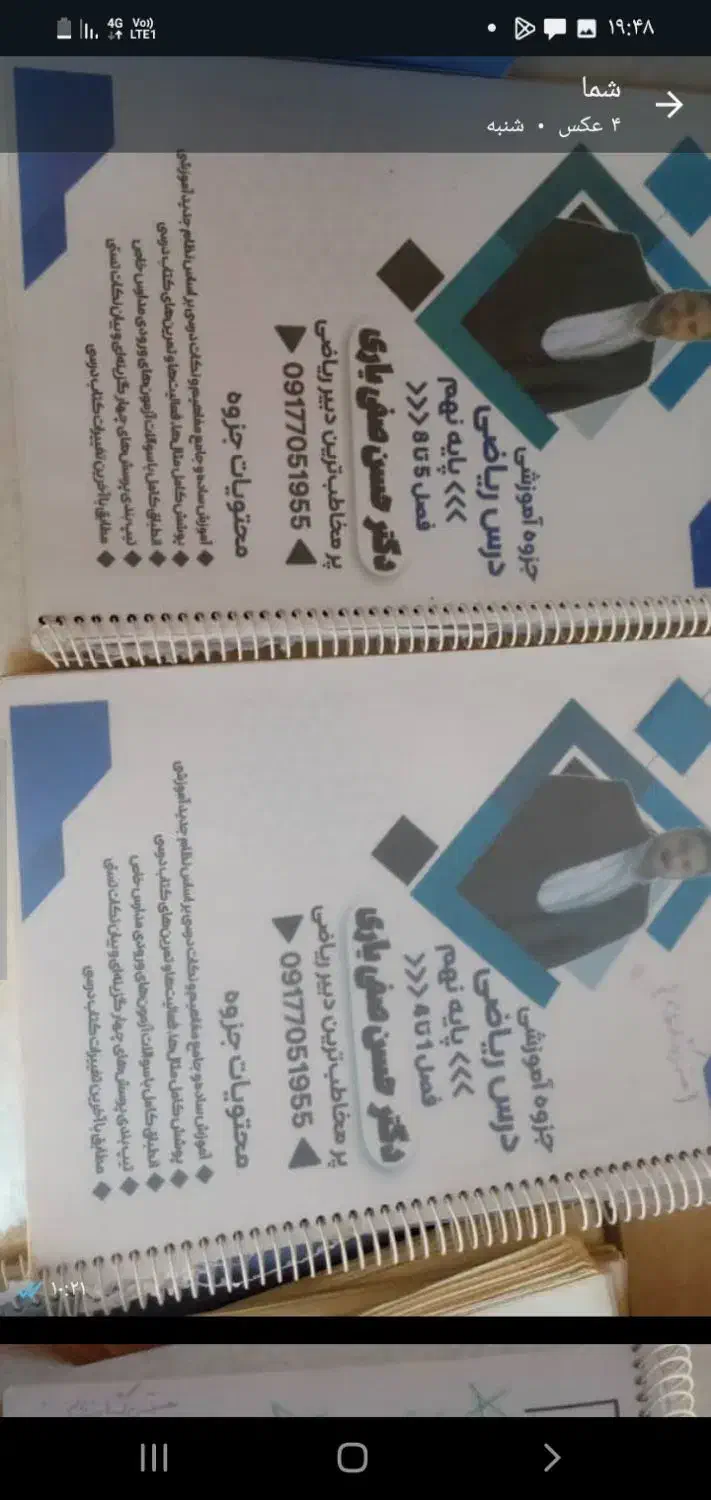 ۱۹:۴۸
4G
Vo))
LTE1
شما
۴ عکس • شنبه
جزوه آموزشی
درس ریاضی
>>> پایه نهم
فصل 5 تا 8 >>>
دکتر حسن صفی یاری
پر مخاطب‌ترین دبیر ریاضی
09177051955
محتویات جزوه
آموزش ساده و جامع مفاهیم و نکات درسی بر اساس نظام جدید آموزشی
پوشش کامل مثال‌ها، فعالیت‌ها و تمرین‌های کتاب درسی
انطباق کامل با سوالات آزمون‌های ورودی مدارس خاص
تیپ بندی پرسش‌های چهار گزینه‌ای و بیان نکات تستی
مطابق با آخرین تغییرات کتاب درسی
جزوه آموزشی
درس ریاضی
>>> پایه نهم
فصل 1 تا 4 >>>
دکتر حسن صفی یاری
پر مخاطب‌ترین دبیر ریاضی
09177051955
محتویات جزوه
آموزش ساده و جامع مفاهیم و نکات درسی بر اساس نظام جدید آموزشی
پوشش کامل مثال‌ها، فعالیت‌ها و تمرین‌های کتاب درسی
انطباق کامل با سوالات آزمون‌های ورودی مدارس خاص
تیپ بندی پرسش‌های چهار گزینه‌ای و بیان نکات تستی
مطابق با آخرین تغییرات کتاب درسی
۱۰:۲۱